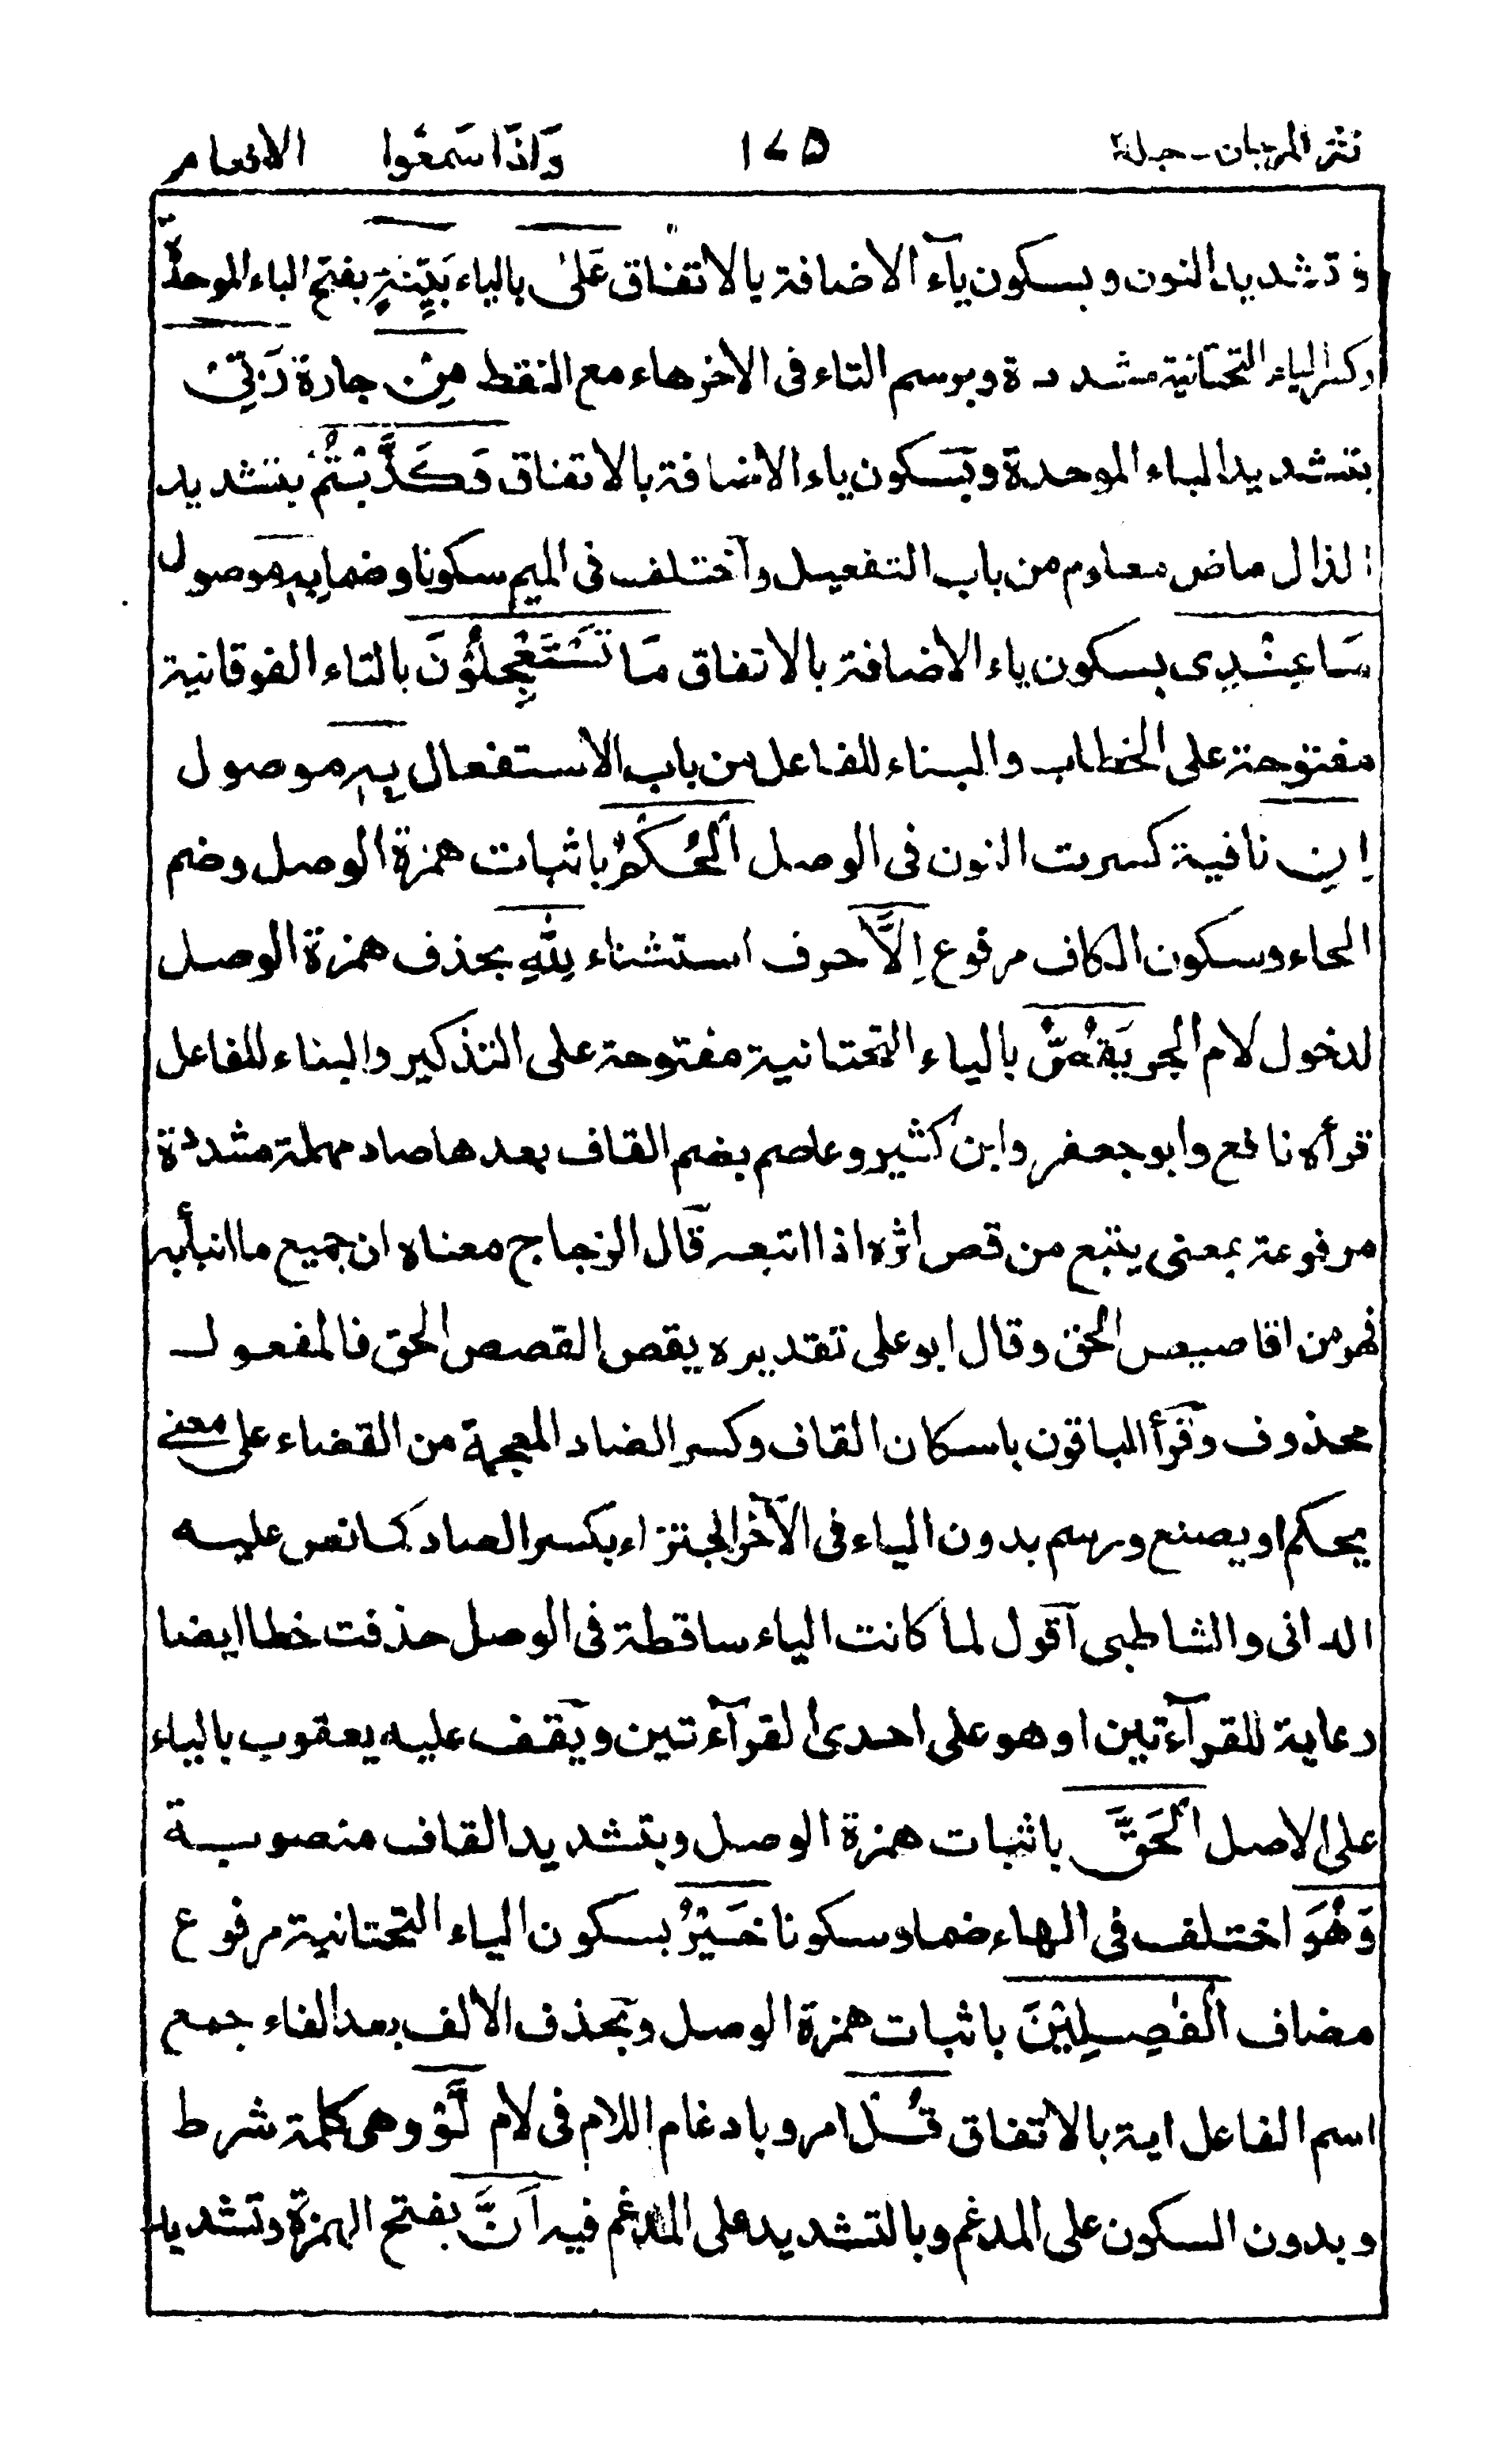 نثر المرجان - جلد ٢ ١٧٥ وَاِذَا سَمِعُوا الانعام
و تشديد النون وبسكون يآء الاضافة بالاتفاق عَلیٰ بالياء بَيِّنَةٍ بفتح الباء الموحدة
وكسر الياء التحتانية مشددة وبرسم التاء فى الاخر هاء مع النقط مِنْ جارة رَبِّيْ
بتشديد الباء الموحدة وبسكون ياء الاضافة بالاتفاق وَكَذَّبْتُمْ بتشديد
الذال ماض معلوم من باب التفعيل واختلف فى الميم سكونا وضما بِهٖ موصول
مَا عِنْدِى بسكون ياء الاضافة بالاتفاق مَا تَسْتَعْجِلُوْنَ بالتاء الفوقانية
مفتوحة على الخطاب والبناء للفاعل من باب الاستفعال بِهٖ موصول
اِنِ نافية كسرت النون فى الوصل الْحُكْمُ باثبات همزة الوصل وضم
الحاء وسكون الكاف مرفوع اِلَّا حرف استثناء لِلّٰهِ بحذف همزة الوصل
لدخول لام الجر يَقُصُّ بالياء التحتانية مفتوحة على التذكير والبناء للفاعل
قرأه نافع وابوجعفر وابن كثير وعاصم بضم القاف بعدها صاد مهملة مشددة
مرفوعة بمعنى يتبع من قص اثره اذا اتبعه قال الزجاج معناه ان جميع ما انبأ به
فهو من اقاصيص الحق وقال ابو على تقديره يقص القصص الحق فالمفعول
محذوف وقرأ الباقون باسكان القاف وكسر الضاد المعجمة من القضاء على معنى
يحكم او يصنع ورسم بدون الياء فى الآخر الجتزاء بكسر الصاد كما نص عليه
الدانى والشاطبى آقول لما كانت الياء ساقطة فى الوصل حذفت خطا ايضا
رعاية للقرآءتين او هو على احدى القرآءتين ويقف عليه يعقوب بالياء
على الاصل الْحَقَّ باثبات همزة الوصل وبتشديد القاف منصوبة
وَهُوَ اختلف فى الهاء ضما وسكونا خَيْرُ بسكون الياء التحتانية مرفوع
مضاف الْفٰصِلِيْنَ باثبات همزة الوصل وبحذف الالف بعد الفاء جمع
اسم الفاعل اية بالاتفاق قُلْ امر وبادغام اللام فى لام لَّوْ وهى كلمة شرط
وبدون السكون على المدغم وبالتشديد على المدغم فيه اَنَّ بفتح الهمزة وتشديد